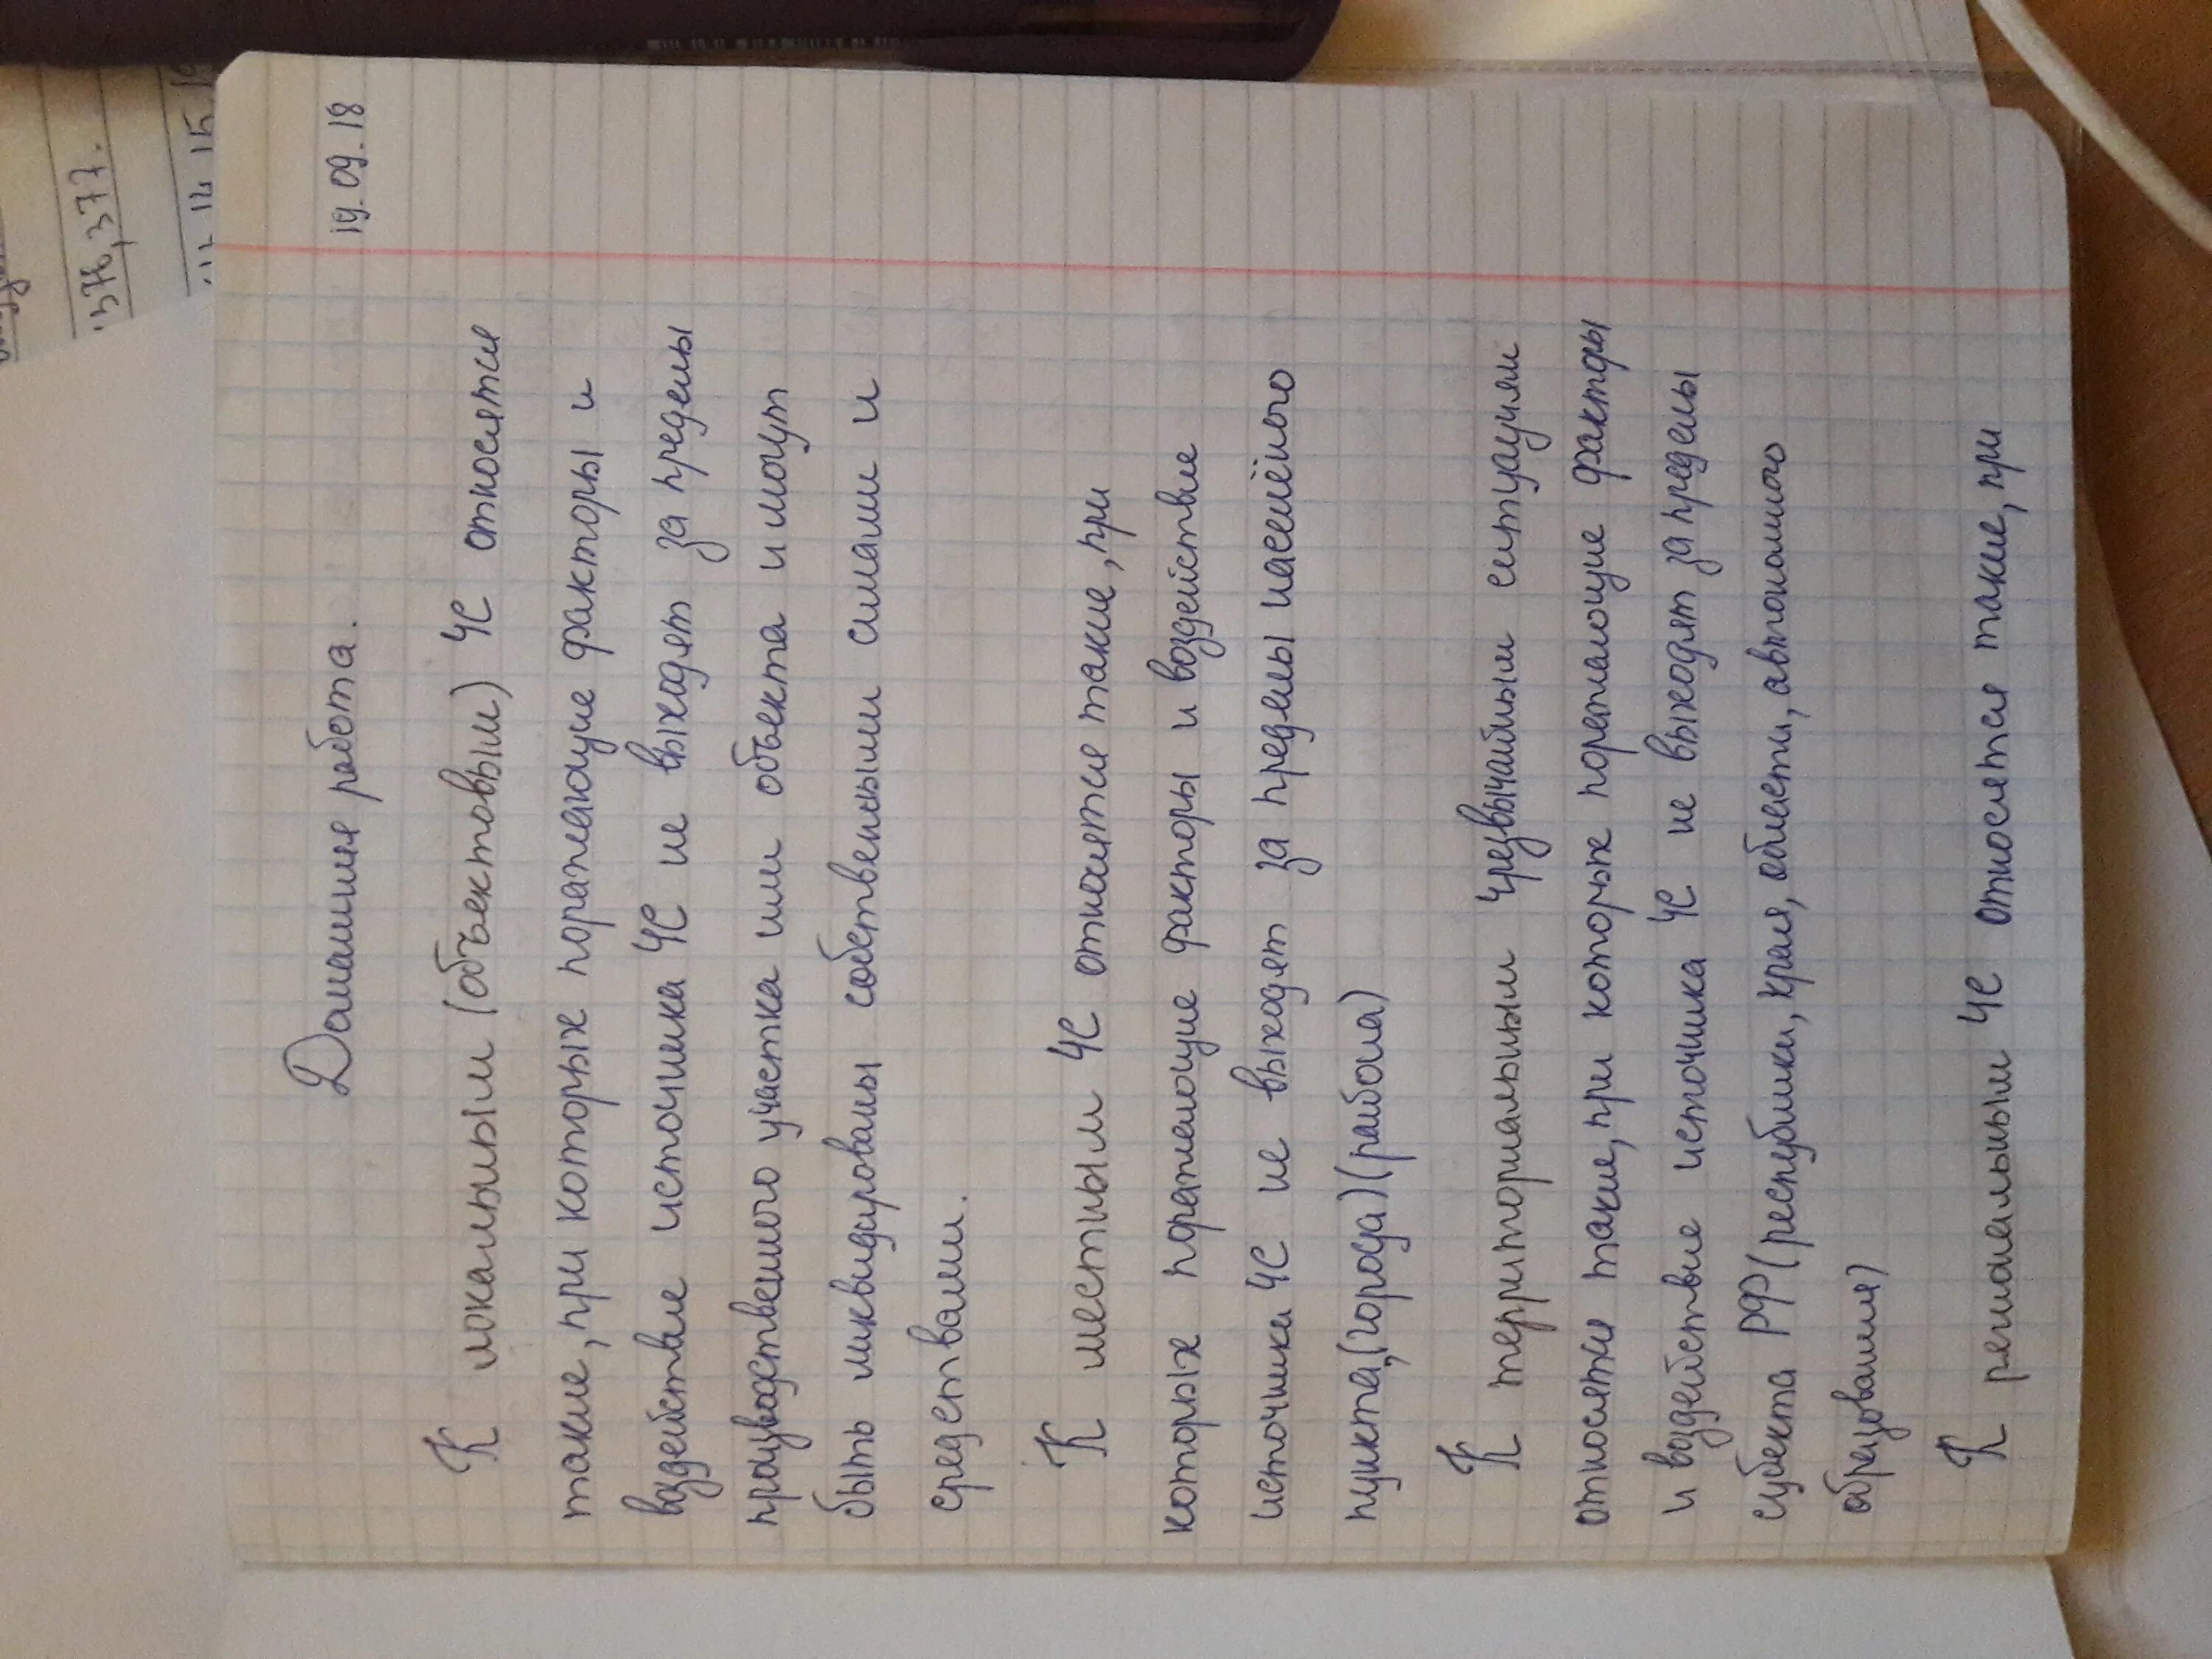 19.09.18
Домашняя работа.
К локальным (объектовым) ЧС относятся
такие, при которых поражающие факторы и
воздействие источника ЧС не выходят за пределы
производственного участка или объекта и могут
быть ликвидированы собственными силами и
средствами.
К местным ЧС относятся такие, при
которых поражающие факторы и воздействие
источника ЧС не выходят за пределы населёного
пункта, (города) (района)
К территориальным чрезвычайным ситуациям
относятся такие, при которых поражающие факторы
и воздействие источника ЧС не выходят за пределы
субекта РФ (республики, края, области, автономного
образования)
К региональным ЧС относятся такие, при
376, 377.